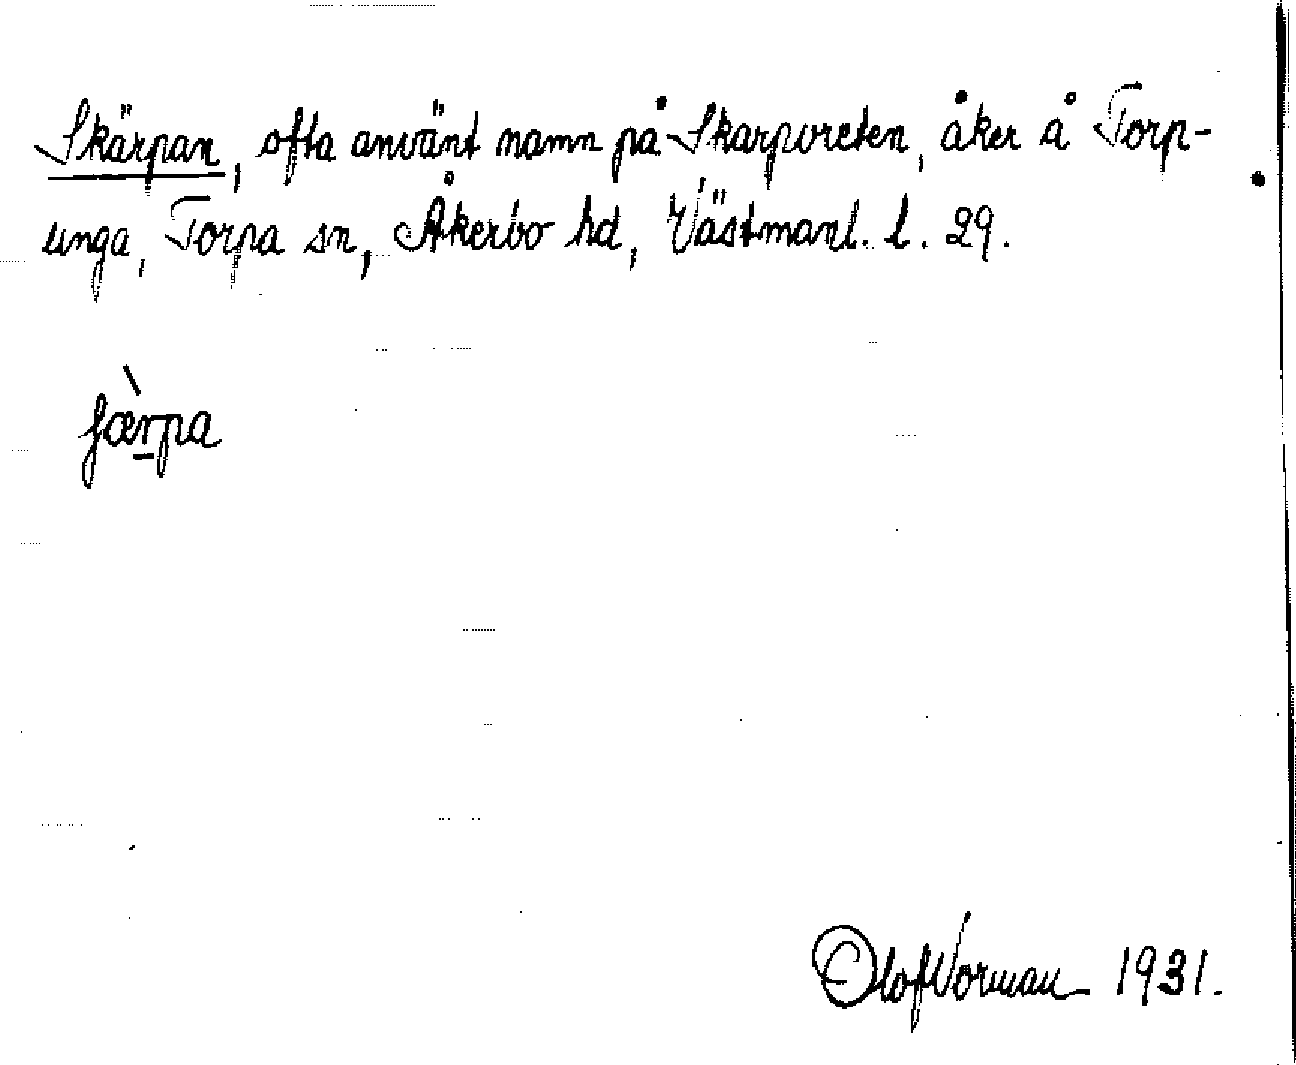 Skärpan, ofta använt namn på Skarpvreten, åker å Torp-
unga, Torpa sn, Åkerbo hd, Västmanl. l. 29.
ʃæ̀r̠pa
Olof Norman 1931.